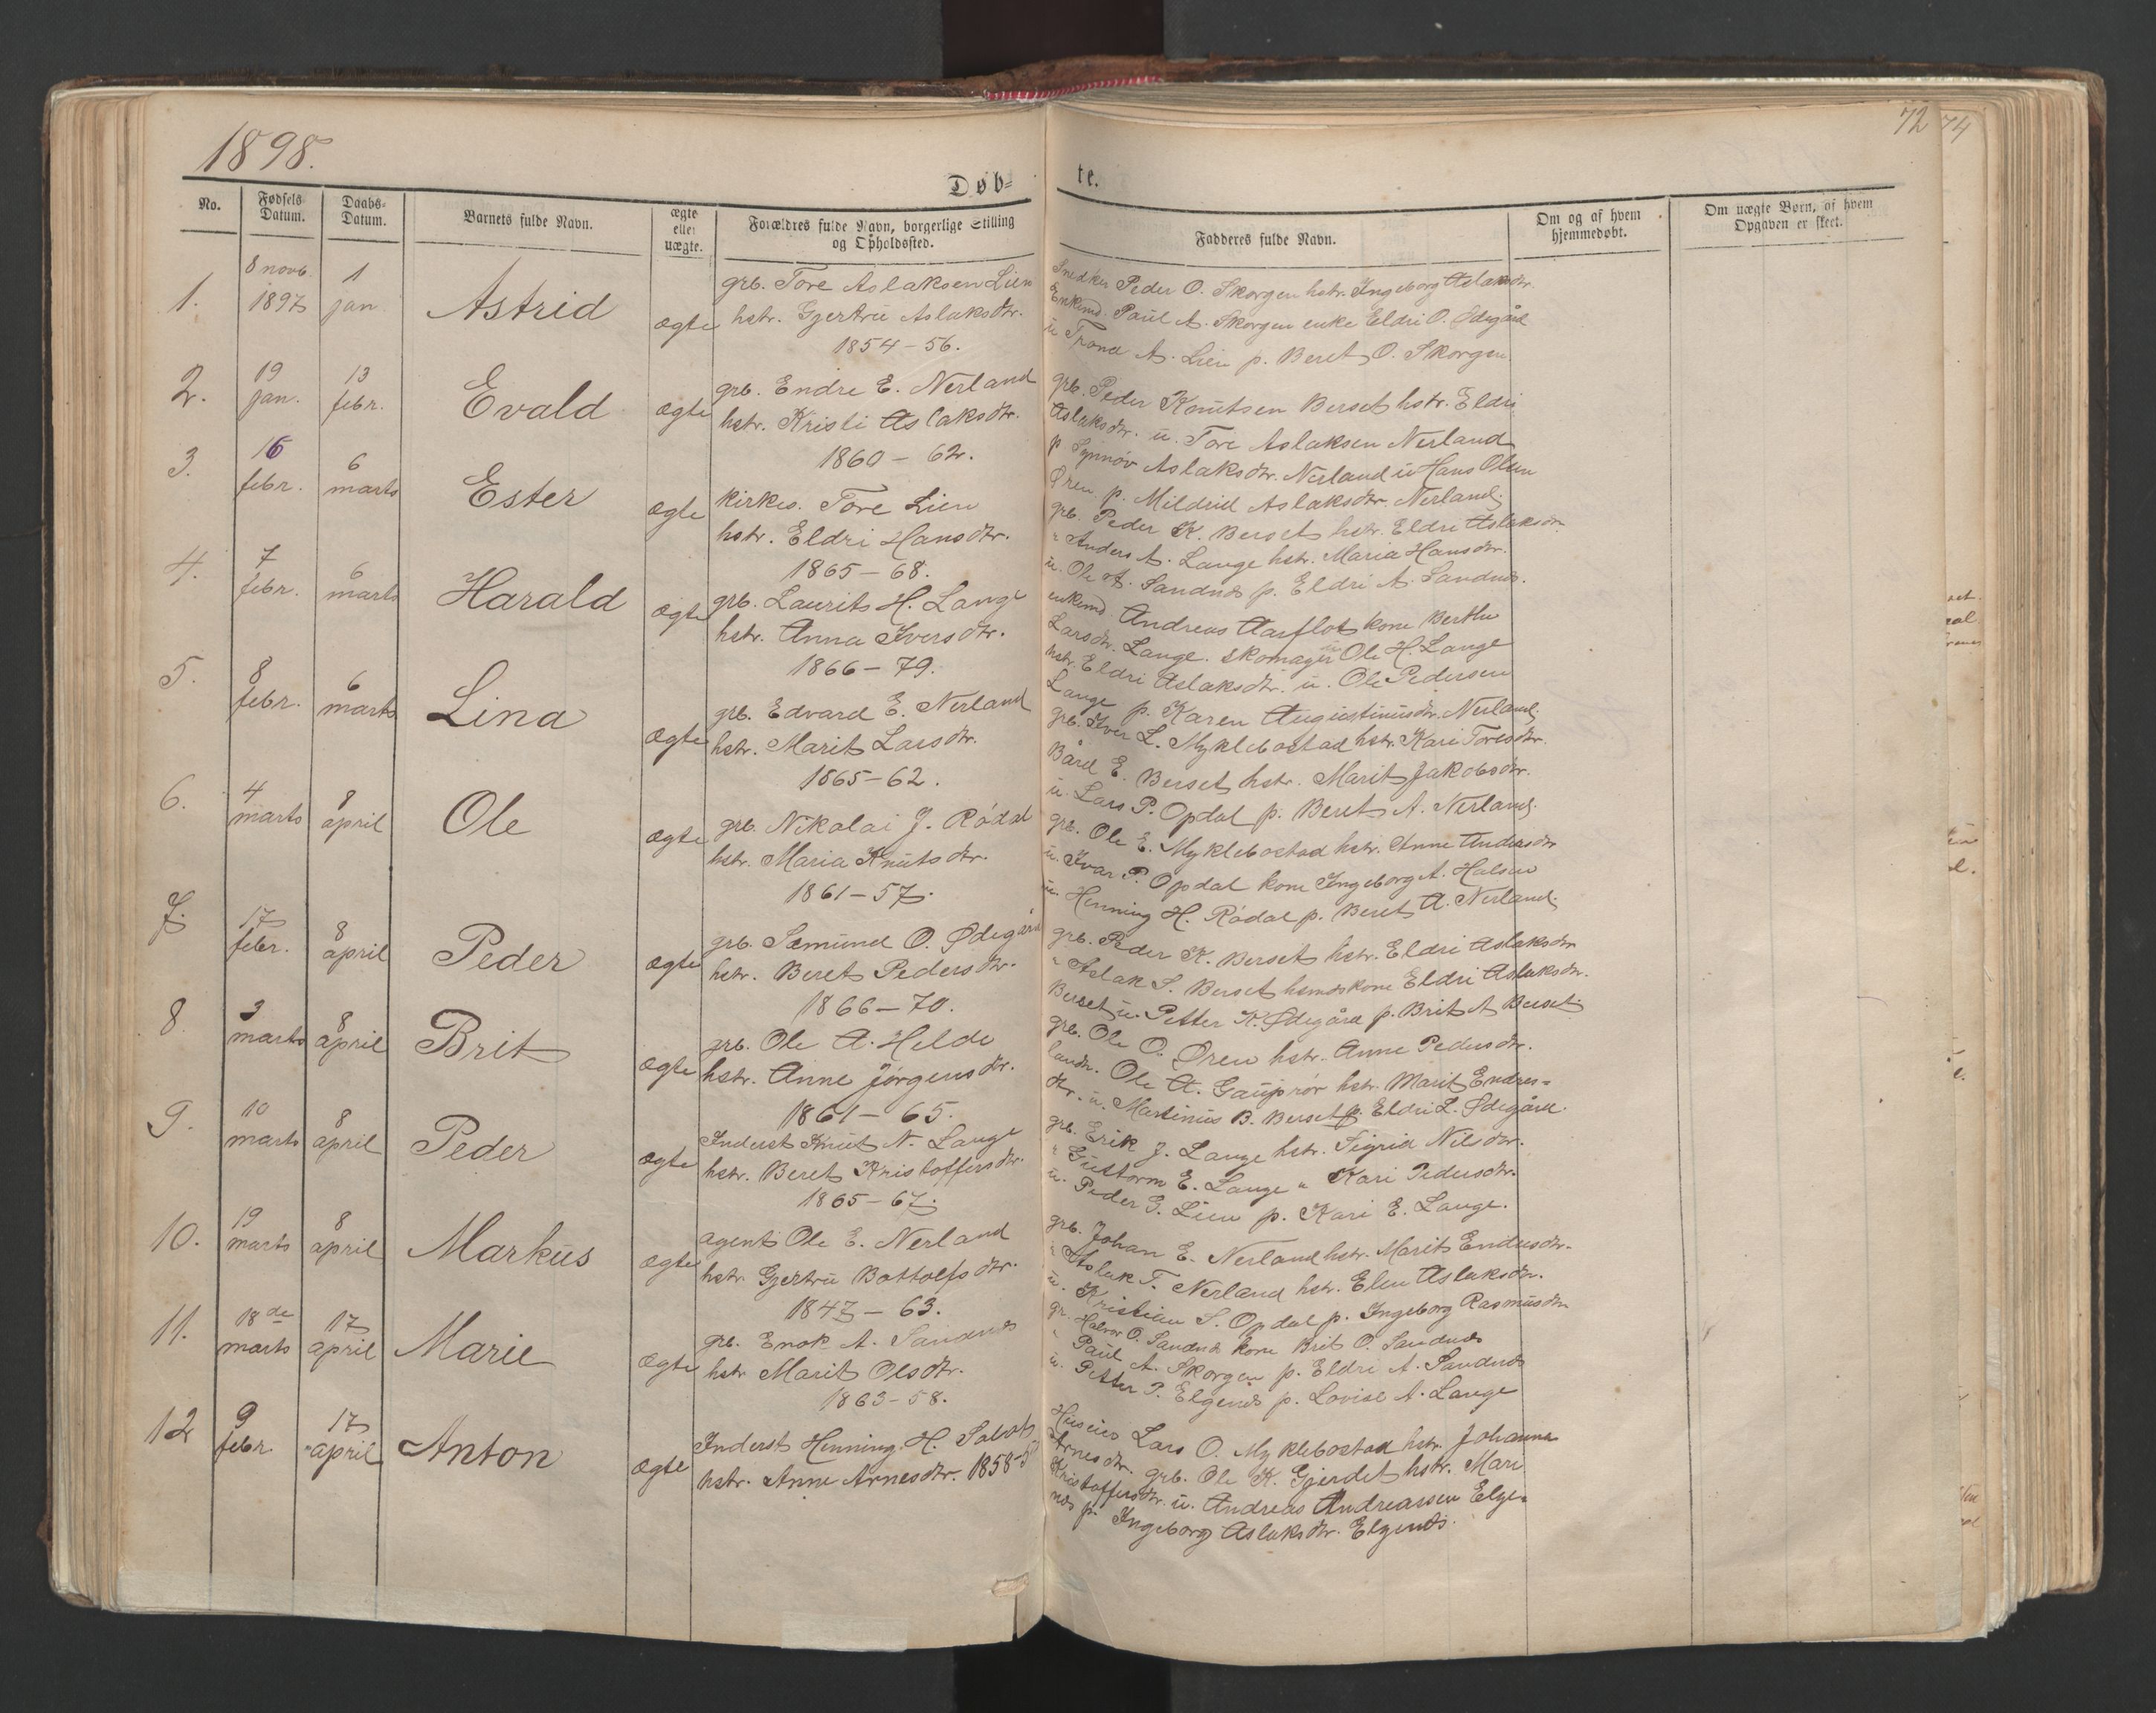 1898.
72 74
Døb=
te.
No.
Fødsels Datum.
Daabs- Datum.
Barnets fulde Navn.
ægte eller uægte.
Forældres fulde Navn, borgerlige Stilling og Opholdssted.
Fadderes fulde Navn.
Om og af hvem hjemmedøbt.
Om uægte Børn, af hvem Opgaven er skeet.
1. 8 novb. 1897 1 jan. Astrid ægte
grb. Tore Aslaksen Lien
hstr. Gjertrü Aslaksdtr.
1854-56.
Snedker Peder O. Skorgen hstr. Ingeborg Aslaksdtr.
Enkemd. Paül A. Skorgen enke Eldri O. Ødegård
ü Trond A. Lien p. Beret O. Skorgen.
2. 19 jan. 13 febr. Evald ægte
grb. Endre E. Nerland
hstr. Kristi Aslaksdtr.
1860-62.
grb. Peder Knütsen Berset hstr. Eldri
Aslaksdtr. ü. Tore Aslaksen Nerland
p Synnøv Aslaksdtr. Nerland ü Hans Olsen
Øren p. Mildrid Aslaksdtr. Nerland.
3. 16 febr. 6 marts Ester ægte
kirkes. Tore Lien
hstr. Eldri Hansdtr.
1865-68.
grb. Peder K. Berset hstr. Eldri Aslaksdtr.
" Anders A. Lange hstr. Maria Hansdtr.
ü. Ole A. Sandnes p. Eldri A. Sandnes.
4. 7 febr. 6 marts Harald ægte
grb. Laurits H. Lange
hstr. Anna Iversdtr.
1866-79.
enkemd Andreas Aarflot kone Berthe
Larsdtr. Lange. skomager Ole H. Lange
hstr. Eldri Aslaksdtr. ü. Ole Pedersen
Lange p. Karen Augustinusdtr. Nerland.
5. 8 febr. 6 marts Lina ægte
grb. Edvard E. Nerland
hstr. Marit Larsdtr.
1865-62.
grb. Iver L. Myklebostad hstr. Kari Toresdtr.
Bård E. Berset hstr. Marit Jakobsdtr.
ü. Lars P. Opdal p. Beret A. Nerland.
6. 4 marts 8 april Ole ægte
grb. Nikolai J. Rødal
hstr. Maria Knütsdtr.
1861-57.
grb. Ole E. Myklebostad hstr. Anne Andersdtr
ü. Ivar P. Opdal kone Ingeborg A. Halsen
ü. Henning H. Rødal p. Beret A. Nerland.
7. 17 febr. 8 april Peder ægte
grb. Sæmünd O. Ødegård
hstr. Beret Pedersdtr.
1866-70.
grb. Peder K. Berset hstr. Eldri Aslaksdtr
" Aslak S. Berset hsmdskone Eldri Aslaksdtr.
Berset ü. Petter K. Ødegård p. Brit A Berset.
8. 3 marts 8 april Brit ægte
grb. Ole A. Helde
hstr. Anne Jørgensdtr.
1861-65.
grb. Ole O. Øren hstr. Anne Pedersdtr.
landh. Ole A. Gaüprør hstr. Marit Endres-
dtr. ü. Martinüs B. Berset p. Eldri L. Ødegård.
9. 10 marts 8 april Peder ægte
Inderst Knüt N. Lange
hstr. Beret Kristoffersdtr.
1865-67.
grb. Erik J. Lange hstr. Sigrid Nilsdtr.
" Güttorm E. Lange " Kari Pedersdtr.
ü. Peder G. Lien p. Kari E. Lange.
10. 19 marts 8 april Marküs ægte
agent Ole E. Nerland
hstr Gjertrü Bottolfsdtr.
1847-63.
grb. Johan E. Nerland hstr. Marit Endresdtr.
" Aslak T. Nerland hstr. Elen Aslaksdtr.
ü. Kristian S. Opdal p. Ingeborg Rasmüsdtr
11. 18de marts 17 april Marie ægte
grb. Enok A. Sandnes
hstr Marit Olsdtr.
1863-58.
gr. Halvor O. Sandnes kone Brit O. Sandnes
" Paül A. Skorgen p. Eldri A. Sandnes
ü. Petter P. Elgenes p. Lovise A. Lange
12 9 febr. 17 april Anton ægte
Inderst Henning H.
hstr. Anne Arnesdtr. 1858-
Lars O. Myklebostad hstr. Johanna
Arnesdtr. grb. Ole K. Gjerdet hstr. Mari
Kristoffersdtr. ü. Andreas Andreassen Elge-
nes p. Ingeborg Aslaksdtr. Elgenes.